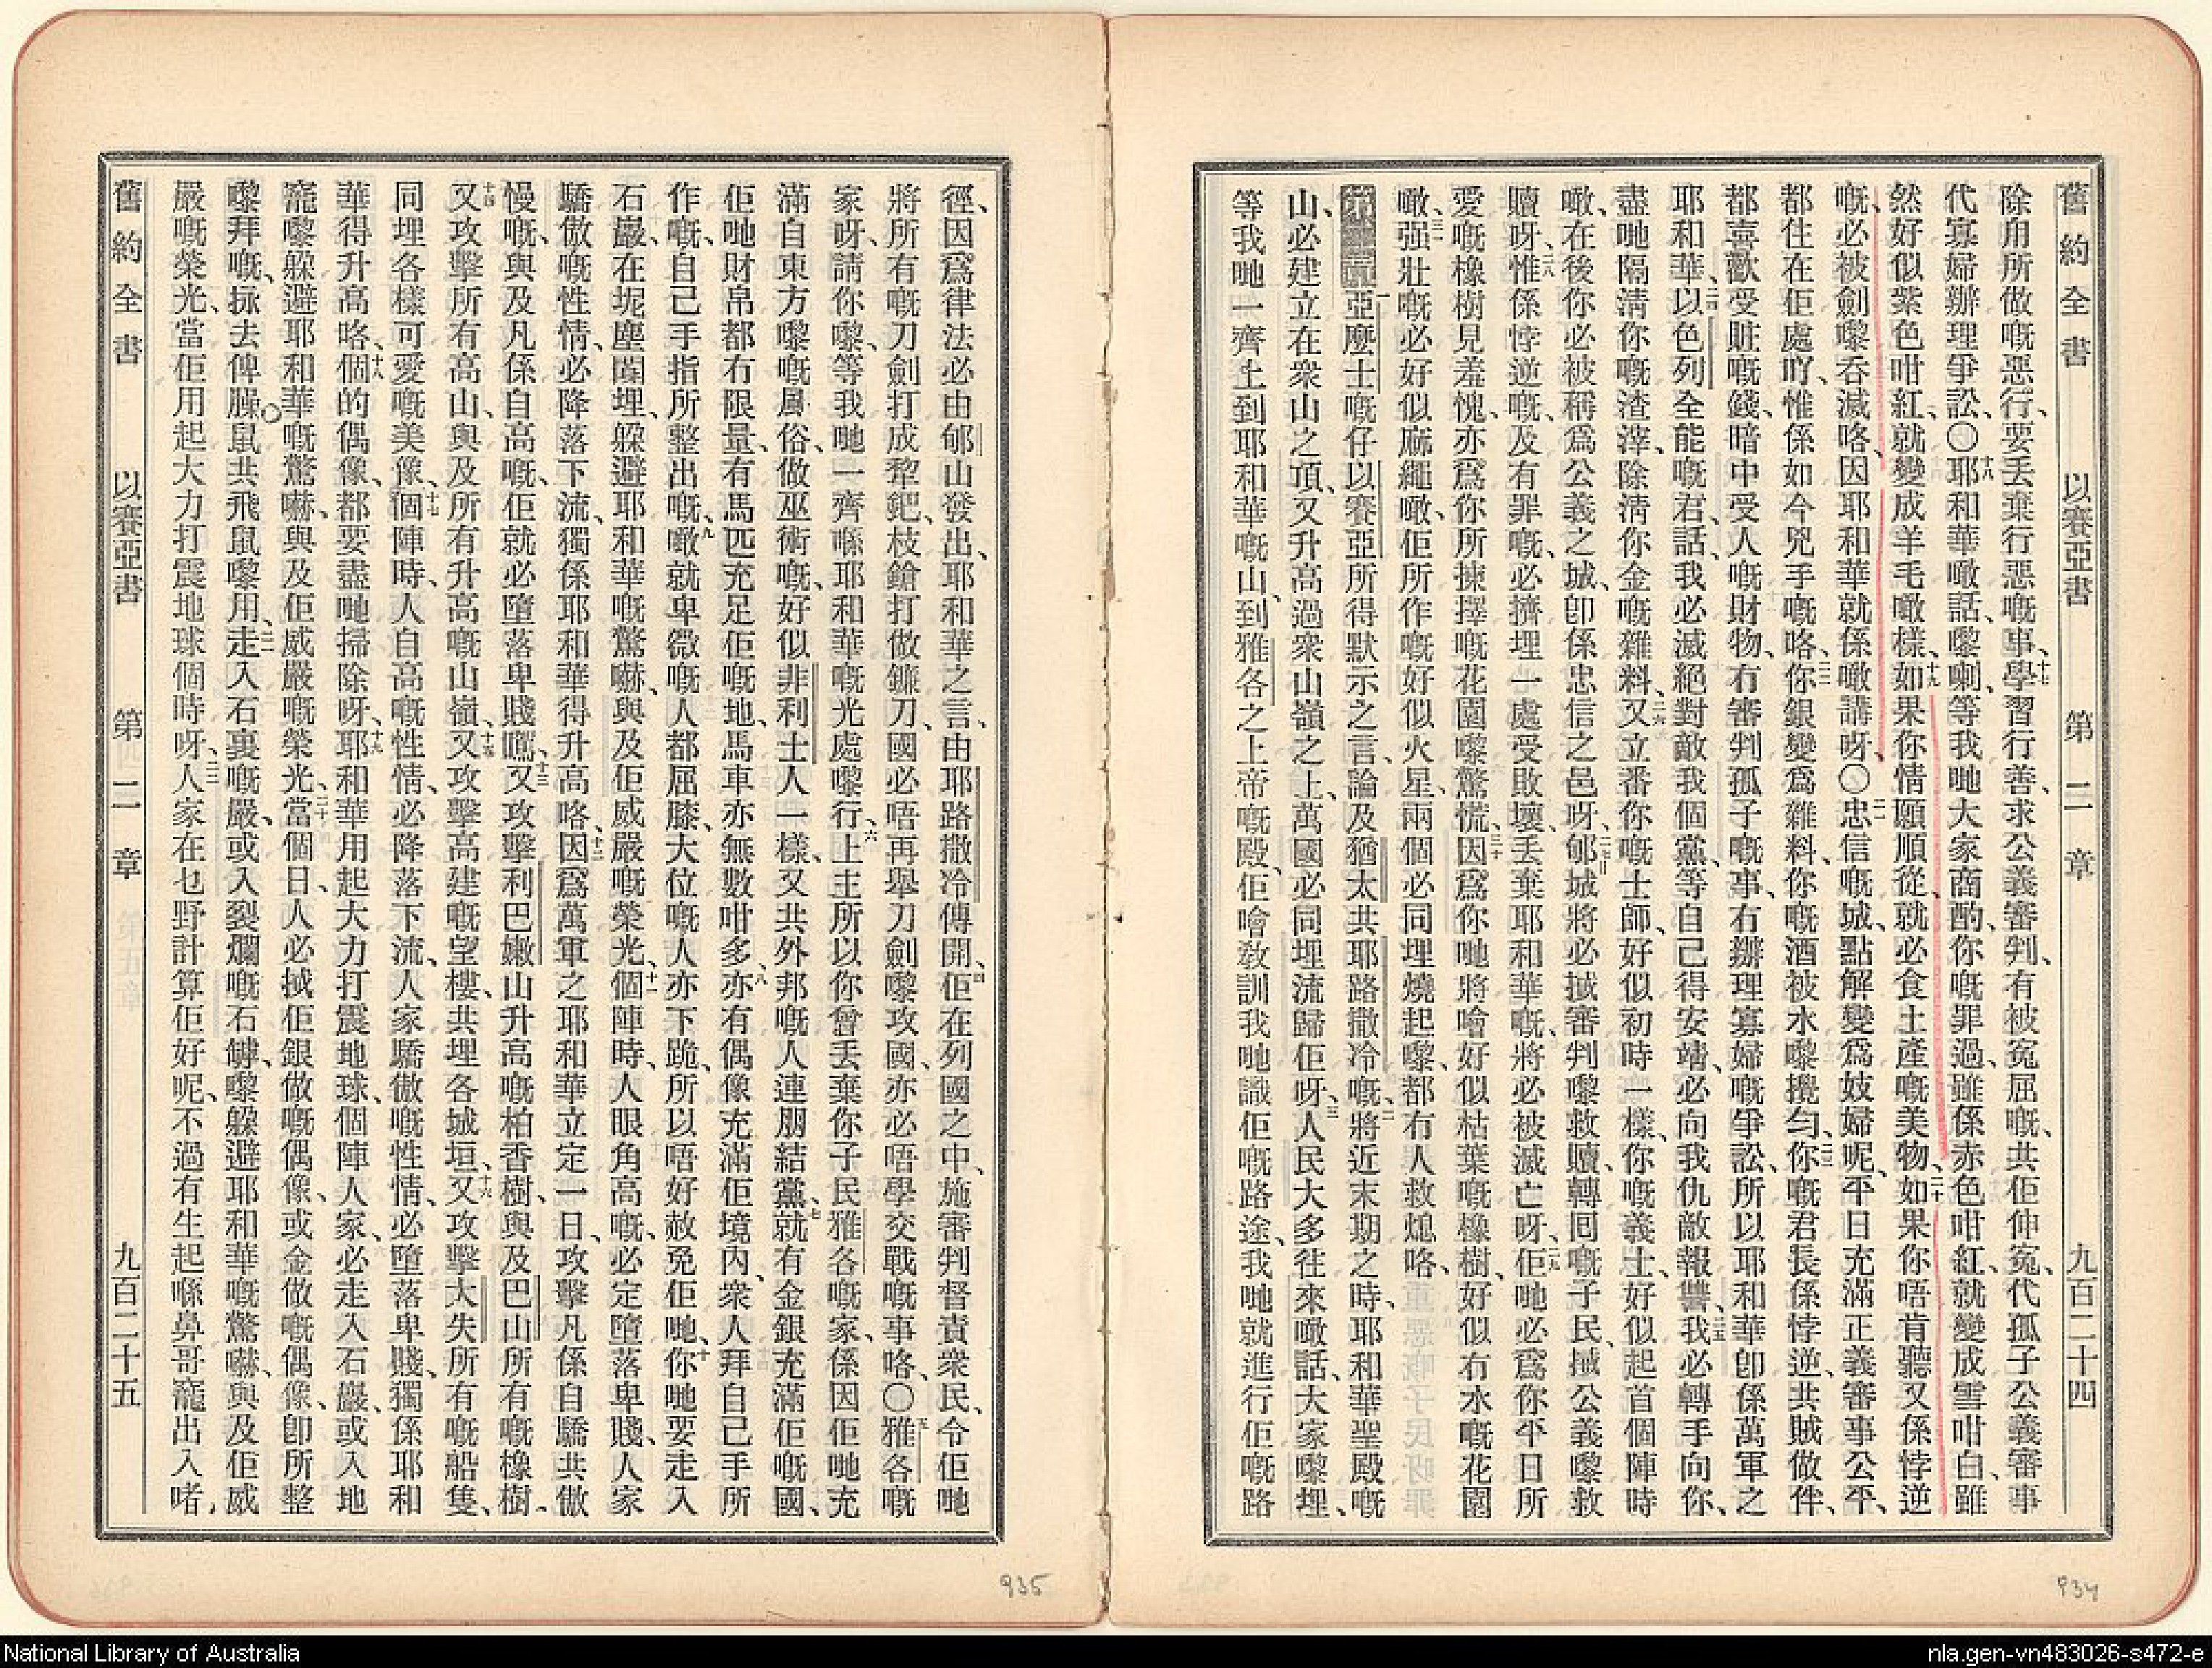 舊約全書 以賽亞書 第二章 九百二十四
除用所做嘅惡行、要丢棄行惡嘅事、十七學習行善、求公義審判、有被寃屈嘅、共佢伸寃、代孤子公義審事
代寡婦辦理爭訟、〇十八耶和華噉話、嚟喇、等我哋大家商酌、你嘅罪過、雖係赤色咁紅、就變成雪咁白、雖
然好似紫色咁紅、就變成羊毛噉樣、十九如果你情願順從、就必食土產嘅美物、二十如果你唔肯聽又係悖逆
嘅、必被劍嚟吞滅咯、因耶和華就係噉講呀、〇二一忠信嘅城、點解變爲妓婦呢、平日充滿正義審事公平、
都住在佢處吖、惟係如今兇手嘅咯、二二你銀變爲雜料、你嘅酒被水嚟攪勻、二三你嘅君長係悖逆共賊做伴、
都喜歡受賍嘅錢、暗中受人嘅財物、冇審判孤子嘅事、冇辦理寡婦嘅爭訟、二四所以耶和華卽係萬軍之
耶和華、以色列全能嘅君、話、我必滅絕對敵我個黨、等自己得安靖、必向我仇敵報讐、二五我必轉手向你、
盡哋隔淸你嘅渣滓、除淸你金嘅雜料、二六又立番你嘅士師、好似初時一樣、你嘅義士好似起首個陣時
噉、在後你必被稱爲公義之城、卽係忠信之邑呀、二七郇城將必㨢審判嚟救贖、轉囘嘅子民、㨢公義嚟救
贖呀、二八惟係悖逆嘅、及有罪嘅、必擠埋一處受敗壞、丢棄耶和華嘅、將必被滅亡呀、二九佢哋必爲你平日所
愛嘅橡樹見羞愧、亦爲你所揀擇嘅花園嚟驚慌、三十因爲你哋將噲好似枯葉嘅橡樹、好似冇水嘅花園
噉、三一强壯嘅必好似麻繩噉、佢所作嘅好似火星、兩個必同埋燒起嚟、都冇人救熄咯、
第二章一亞麼士嘅仔以賽亞所得默示之言、論及猶太共耶路撒冷嘅、二將近末期之時、耶和華聖殿嘅
山、必建立在衆山之頂、又升高過衆山嶺之上、萬國必同埋流歸佢呀、三人民大多往來噉話、大家嚟埋、
等我哋一齊上到耶和華嘅山、到雅各之上帝嘅殿、佢噲敎訓我哋識佢嘅路途、我哋就進行佢嘅路
徑、因爲律法必由郇山發出、耶和華之言、由耶路撒冷傳開、四佢在列國之中、施審判督責衆民、令佢哋
將所有嘅刀劍打成犂鈀、枝鎗打做鐮刀、國必唔再舉刀劍嚟攻國、亦必唔學交戰嘅事咯、〇五雅各嘅
家呀、請你嚟、等我哋一齊喺耶和華嘅光處嚟行、六上主所以你曾丢棄你子民雅各嘅家、係因佢哋充
滿自東方嚟嘅風俗、做巫術嘅、好似非利士人一樣、又共外邦嘅人連朋結黨、七就有金銀充滿佢嘅國、
佢哋財帛都冇限量、有馬匹充足佢嘅地、馬車亦無數咁多、八亦有偶像充滿佢境內、衆人拜自己手所
作嘅、自己手指所整出嘅、九噉就卑微嘅人都屈膝、大位嘅人亦下跪、所以唔好赦免佢哋、十你哋要走入
石巖、在坭塵閪埋、躲避耶和華嘅驚嚇、與及佢威嚴嘅榮光、十一個陣時、人眼角高嘅、必定墮落卑賤、人家
驕傲嘅性情、必降落下流、獨係耶和華得升高咯、十二因爲萬軍之耶和華立定一日、攻擊凡係自驕共傲
慢嘅、與及凡係自高嘅、佢就必墮落卑賤嘅、十三又攻擊利巴嫩山升高嘅柏香樹、與及巴山所有嘅橡樹、
十四又攻擊所有高山、與及所有升高嘅山嶺、十五又攻擊高建嘅望樓、共埋各城垣、十六又攻擊大失所有嘅船隻、
同埋各樣可愛嘅美像、十七個陣時、人自高嘅性情、必降落下流、人家驕傲嘅性情、必墮落卑賤、獨係耶和
華得升高咯、十八個的偶像、都要盡哋掃除呀、十九耶和華用起大力打震地球、個陣人家、必走入石巖、或入地
窿嚟躲避耶和華嘅驚嚇、與及佢威嚴嘅榮光、二十當個日、人必㨢佢銀做嘅偶像、或金做嘅偶像、卽所整
嚟拜嘅、𢫏去俾臊鼠共飛鼠嚟用、二一走入石裏嘅巖、或入裂爛嘅石罅、嚟躲避耶和華嘅驚嚇、與及佢威
嚴嘅榮光、當佢用起大力打震地球個時呀、二二人家在乜野計算佢好呢、不過有生起喺鼻哥窿出入啫、
舊約全書 以賽亞書 第二章 九百二十五
935
934
National Library of Australia
nla.gen-vn483026-s472-e